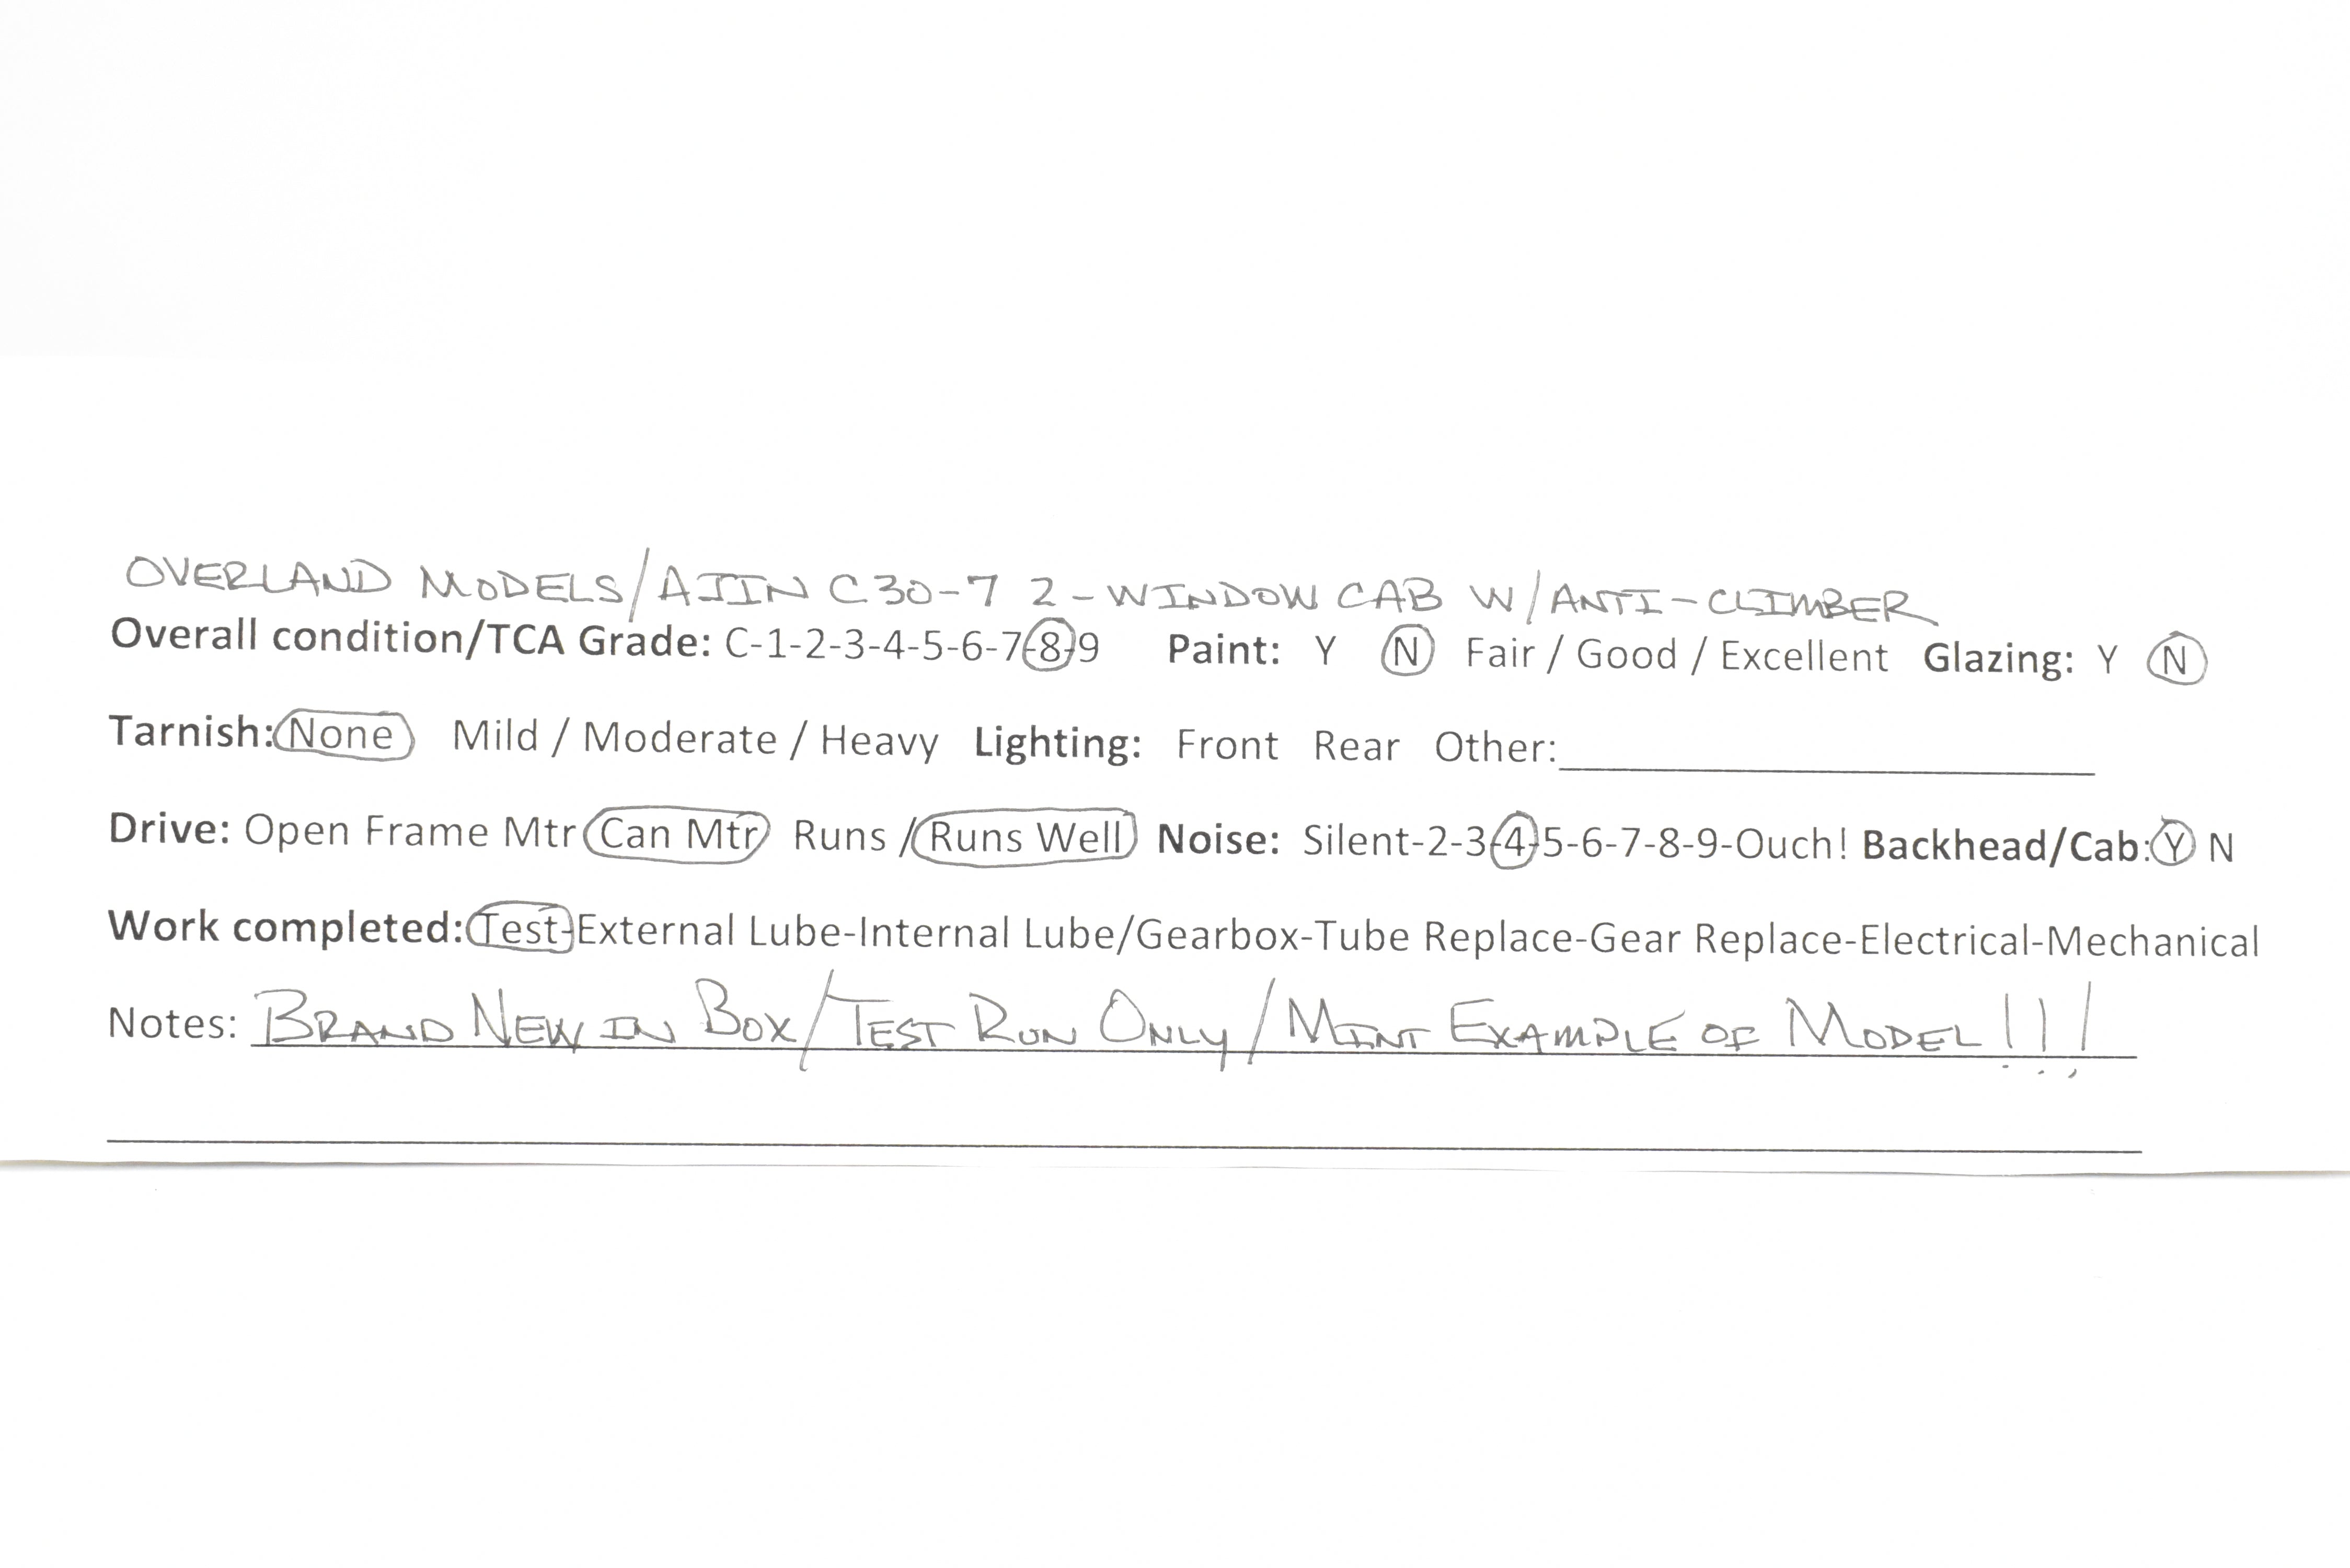 OVERLAND MODELS/AJIN C30-7 2-WINDOW CAB W/ANTI-CLIMBER
Overall condition/TCA Grade: C-1-2-3-4-5-6-7-8-9 Paint: Y N Fair / Good / Excellent Glazing: Y N
Tarnish: None Mild / Moderate / Heavy Lighting: Front Rear Other:
Drive: Open Frame Mtr Can Mtr Runs / Runs Well Noise: Silent-2-3-4-5-6-7-8-9-Ouch! Backhead/Cab: Y N
Work completed: Test-External Lube-Internal Lube/Gearbox-Tube Replace-Gear Replace-Electrical-Mechanical
Notes: BRAND NEW IN BOX/TEST RUN ONLY/MINT EXAMPLE OF MODEL!!!